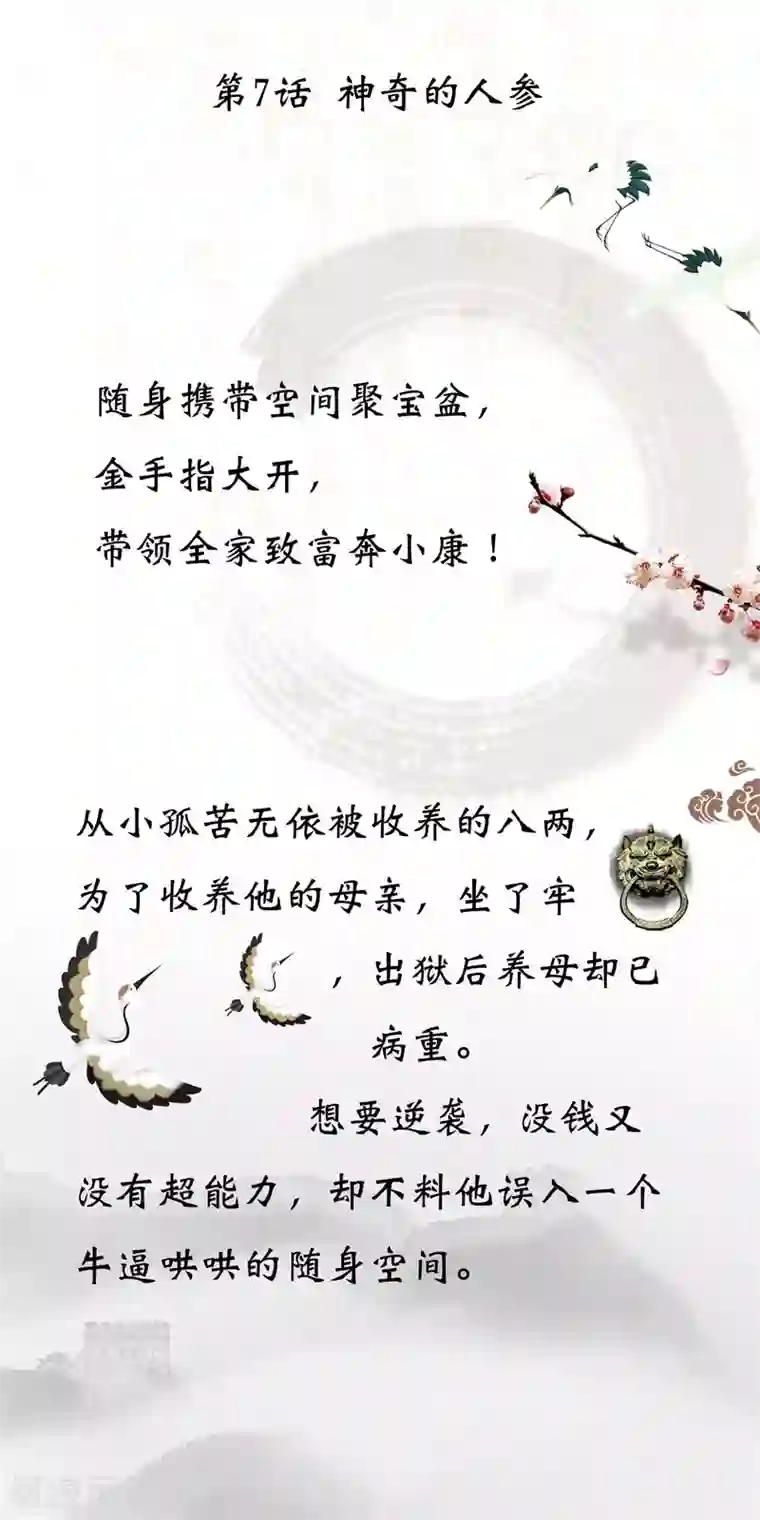 第7话 神奇的人参
随身携带空间聚宝盆，
金手指大开，
带领全家致富奔小康！
从小孤苦无依被收养的八两，
为了收养他的母亲，坐了牢
，出狱后养母却已
病重。
想要逆袭，没钱又
没有超能力，却不料他误入一个
牛逼哄哄的随身空间。